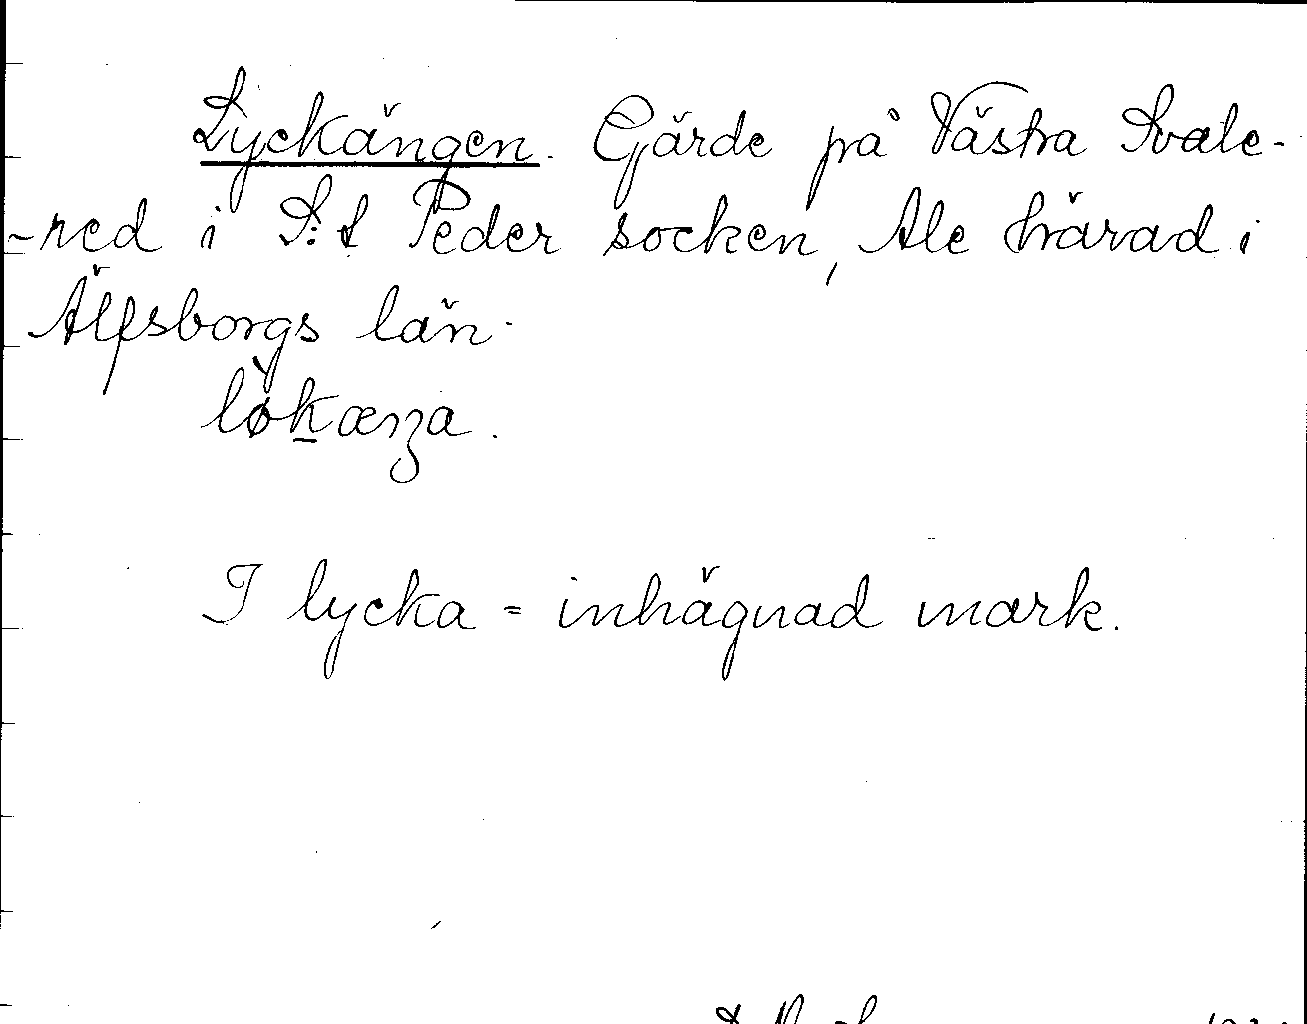 Lyckängen. Gärde på Västra Svale-
-red i S:t Peder socken, Ale härad i
Älfsborgs län.
løkæŋa.
I lycka = inhägnad mark.